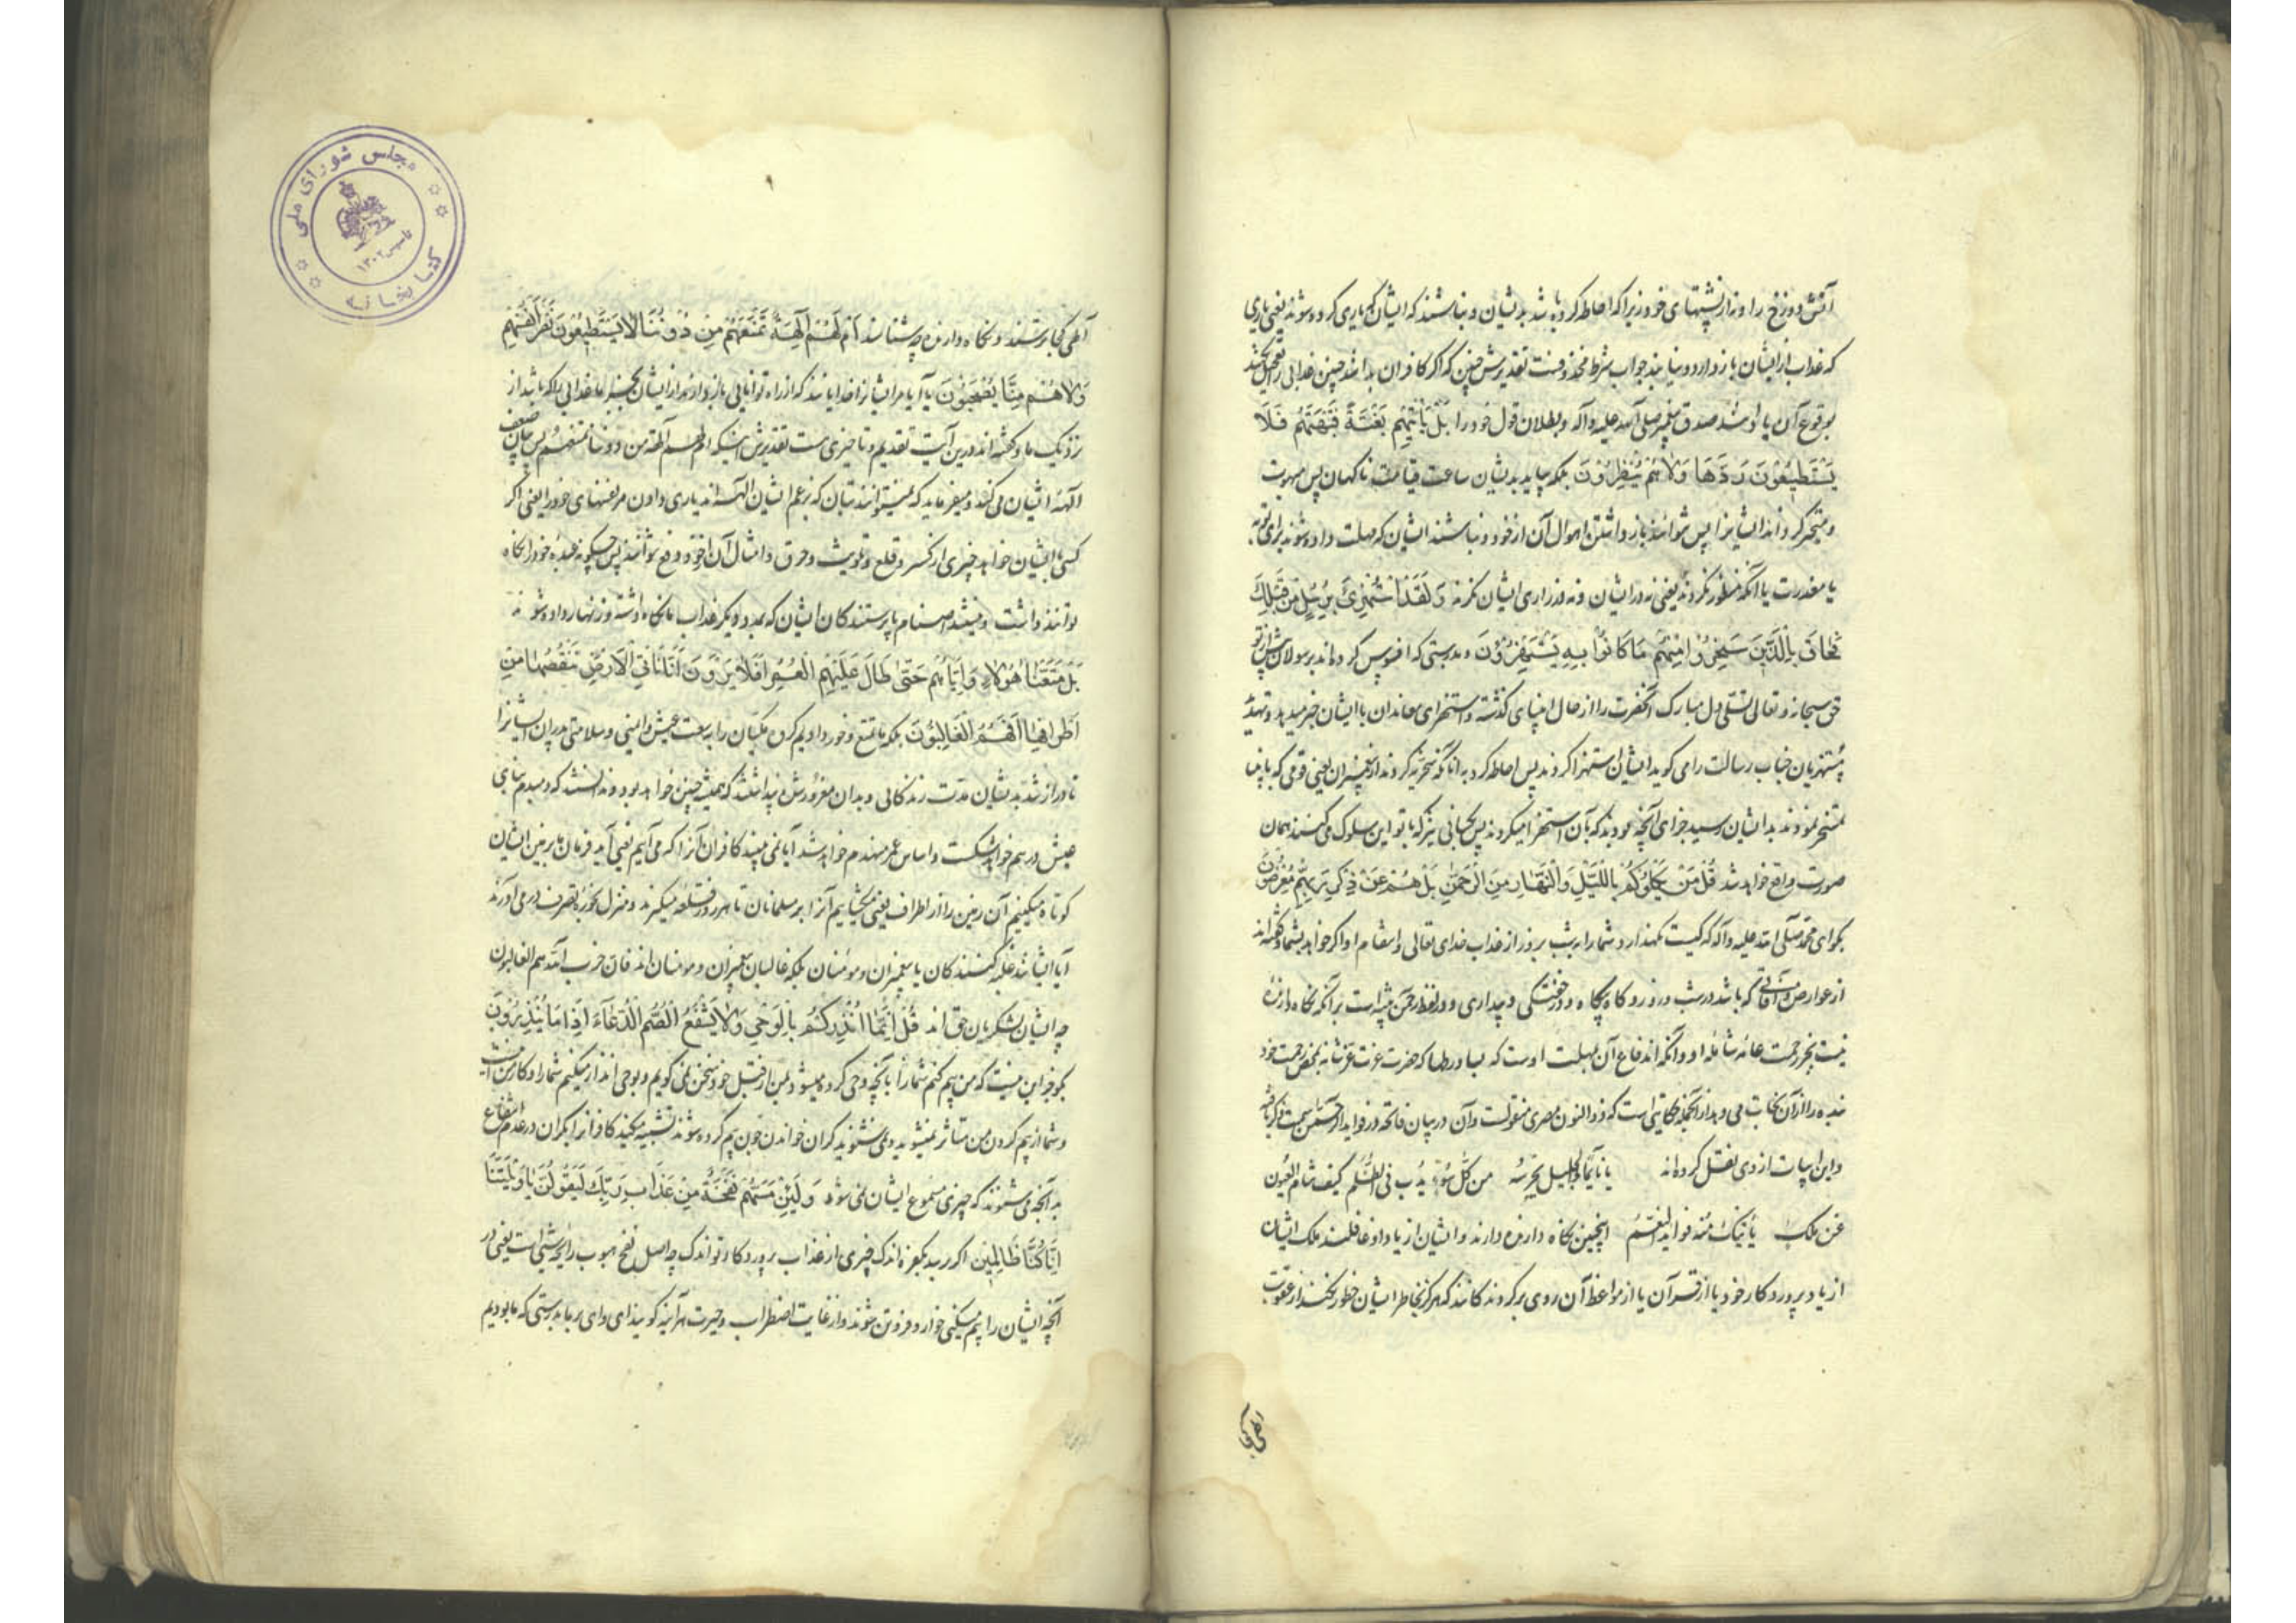 آتش دوزخ را و نه از پشتهای خود زیرا که احاطه کرده باشد بدیشان و نباشند که ایشان که یاری کرده شوند یعنی یاری
که عذاب از ایشان باز دارد و بیابند جواب شرط محذوفست تقدیرش چنین که اگر کافران بدانند چنین عذابی را تعجیل نکنند
بوقوع آن یا صدق پیغمبر صلی الله علیه وآله و بطلان قول خود را بَلْ تَأْتِیهِمْ بَغْتَةً فَتَبْهَتُهُمْ فَلَا
یَسْتَطِیعُونَ رَدَّهَا وَلَا هُمْ یُنْظَرُونَ بلکه بیاید بدیشان ساعت قیامت ناگهان پس مبهوت
و متحیر گرداند ایشانرا پس نتوانند باز داشتن اهوال آن از خود و نباشند ایشان که مهلت داده شوند برای توبه
یا معذرت یا آنکه منظور نگردند یعنی نه در ایشان و نه در زاری ایشان نگرند وَلَقَدِ اسْتُهْزِئَ بِرُسُلٍ مِنْ قَبْلِكَ
فَحَاقَ بِالَّذِینَ سَخِرُوا مِنْهُمْ مَا كَانُوا بِهِ یَسْتَهْزِؤُنَ و بدرستی که افسوس کرده اند برسولان پیش از تو
حق سبحانه و تعالی تسلی دل مبارک آنحضرت را از حال انبیای گذشته و استهزای معاندان با ایشان خبر میدهد و تهدید
مستهزیان جناب رسالت را می گوید ایشان استهزا کردند پس احاطه کرد به آنانکه سخریه کردند از پیغمبران یعنی قومی که با انبیا
تمسخر نمودند بدایشان رسید جزای آنچه بودند که بآن استهزا میکردند پس کسانی نیز که با تو این سلوک می کنند همان
صورت واقع خواهد شد قُلْ مَنْ یَكْلَؤُكُمْ بِاللَّیْلِ وَالنَّهَارِ مِنَ الرَّحْمٰنِ بَلْ هُمْ عَنْ ذِكْرِ رَبِّهِمْ مُعْرِضُونَ
بگو ای محمد صلی الله علیه وآله که کیست نگهدارد شما را بشب و روز از عذاب خدای تعالی و انتقام او اگر خواهد بشما و گفته اند
از عوارض و آفاتی که باشد در شب و روز و گاه بیگاه و در خفتگی و بیداری و در لفظ رحمن تنبیه است بر آنکه نگاه دارنده
نیست بجز رحمت عامه شامله او و آنکه اندفاع آن بمهلت اوست که بسا در طلبا که حضرت عزت عز شانه بمحض رحمت خود
بنده را از آن نجات می دهد از آنجمله حکایتی است که از ذوالنون مصری منقولست و آن در بیان فاتحه در فواید الرحمن سمت ذکر یافته
و این ابیات از وی نقل کرده اند یا نائما والجلیل یحرسه من كل سوء یدب فی الظلم كیف تنام العیون
عن ملك یأتیك منه فواید النعم اینچنین نگاه دارنده دارند و ایشان از یاد او غافلند بلکه ایشان
از یاد پروردگار خود یا از قرآن یا از مواعظ آن روی برگردانند کانند که هرگز بخاطر ایشان خطور نکند از عقوبت
الهی کجا
الهی کجا ترسند و نگاه دارنده چه شناسند اَمْ لَهُمْ اٰلِهَةٌ تَمْنَعُهُمْ مِنْ دُونِنَا لَا یَسْتَطِیعُونَ نَصْرَ اَنْفُسِهِمْ
وَلَا هُمْ مِنَّا یُصْحَبُونَ یا آیا مر ایشانرا خدایانند که از راه توانایی باز دارند از ایشان بجز ما عذابی را که باشد از
نزدیک ما و گفته اند درین آیت تقدیم و تاخیری ست تقدیرش اینکه ام لهم آلهة من دوننا تمنعهم پس بیان ضعف
آلهه ایشان می کند و میفرماید که نمیتوانند بتان که بزعم ایشان آلهه اند یاری دادن مر نفسهای خود را یعنی اگر
کسی با ایشان خواهد چیزی از کسر و قلع و تلویث و حرق و امثال آن از خود دفع نتوانند پس چگونه عبده خود را نگاه
توانند داشت و نیستند اصنام یا پرستندگان ایشان که بمدد دیگر عذاب ما نگاه داشته و زنهار داده شوند
بَلْ مَتَّعْنَا هٰؤُلَاءِ وَاٰبَاءَهُمْ حَتّٰى طَالَ عَلَیْهِمُ الْعُمُرُ اَفَلَا یَرَوْنَ اَنَّا نَأْتِی الْاَرْضَ نَنْقُصُهَا مِنْ
اَطْرَافِهَا اَفَهُمُ الْغَالِبُونَ بلکه ما تمتع و خورد دادیم گروه مکیان را بسعت عیش و ایمنی و سلامتی و پدران ایشانرا
تا دراز شد بدیشان مدت زندگانی و بدان مغرور شده پنداشتند که همیشه چنین خواهد بود و ندانستند که دمبدم بنای
عیش درهم خواهد شکست و اساس عمر منهدم خواهد شد آیا نمی بینند کافران آنرا که می آییم یعنی آید فرمان ما بزمین ایشان
کوتاه میکنیم آن زمین را از اطراف یعنی میگشاییم آنرا بر مسلمانان تا هر روز قلعه میگیرند و منزل بتصرف در می آورند
آیا ایشانند غلبه کنندگان با پیغمبران و مومنان بلکه غالبان پیغمبران و مومنان اند فان حزب الله هم الغالبون
چه ایشان لشکریان حق اند قُلْ اِنَّمَا اُنْذِرُكُمْ بِالْوَحْیِ وَلَا یَسْمَعُ الصُّمُّ الدُّعَاءَ اِذَا مَا یُنْذَرُونَ
بگو جز این نیست که من بیم کنم شما را بآنچه وحی کرده میشود بمن از قبل خود سخن نمی گویم و بوحی انذار میکنم شما را و کار من اینست
و شما از بیم کردن من متاثر نمیشوید و نمی شنوند کران خواندن چون بیم کرده شوند تشبیه میکند کافرانرا بکران در عدم انتفاع
به آنچه می شنوند که چیزی مسموع ایشان نمی شود وَلَئِنْ مَسَّتْهُمْ نَفْحَةٌ مِنْ عَذَابِ رَبِّكَ لَیَقُولُنَّ یَا وَیْلَنَا
اِنَّا كُنَّا ظَالِمِینَ اگر برسد بکفره اندک چیزی از عذاب پروردگار تو اندک چه اصل نفح هبوب رایحه شی است یعنی از
آنچه ایشان را بیم میکنی خوار و فروتن شوند و از غایت اضطراب و حیرت هرآینه گویند ای وای بر ما بدرستی که ما بودیم
مجلس شورای ملی
تاسیس ۱۳۰۲
کتابخانه